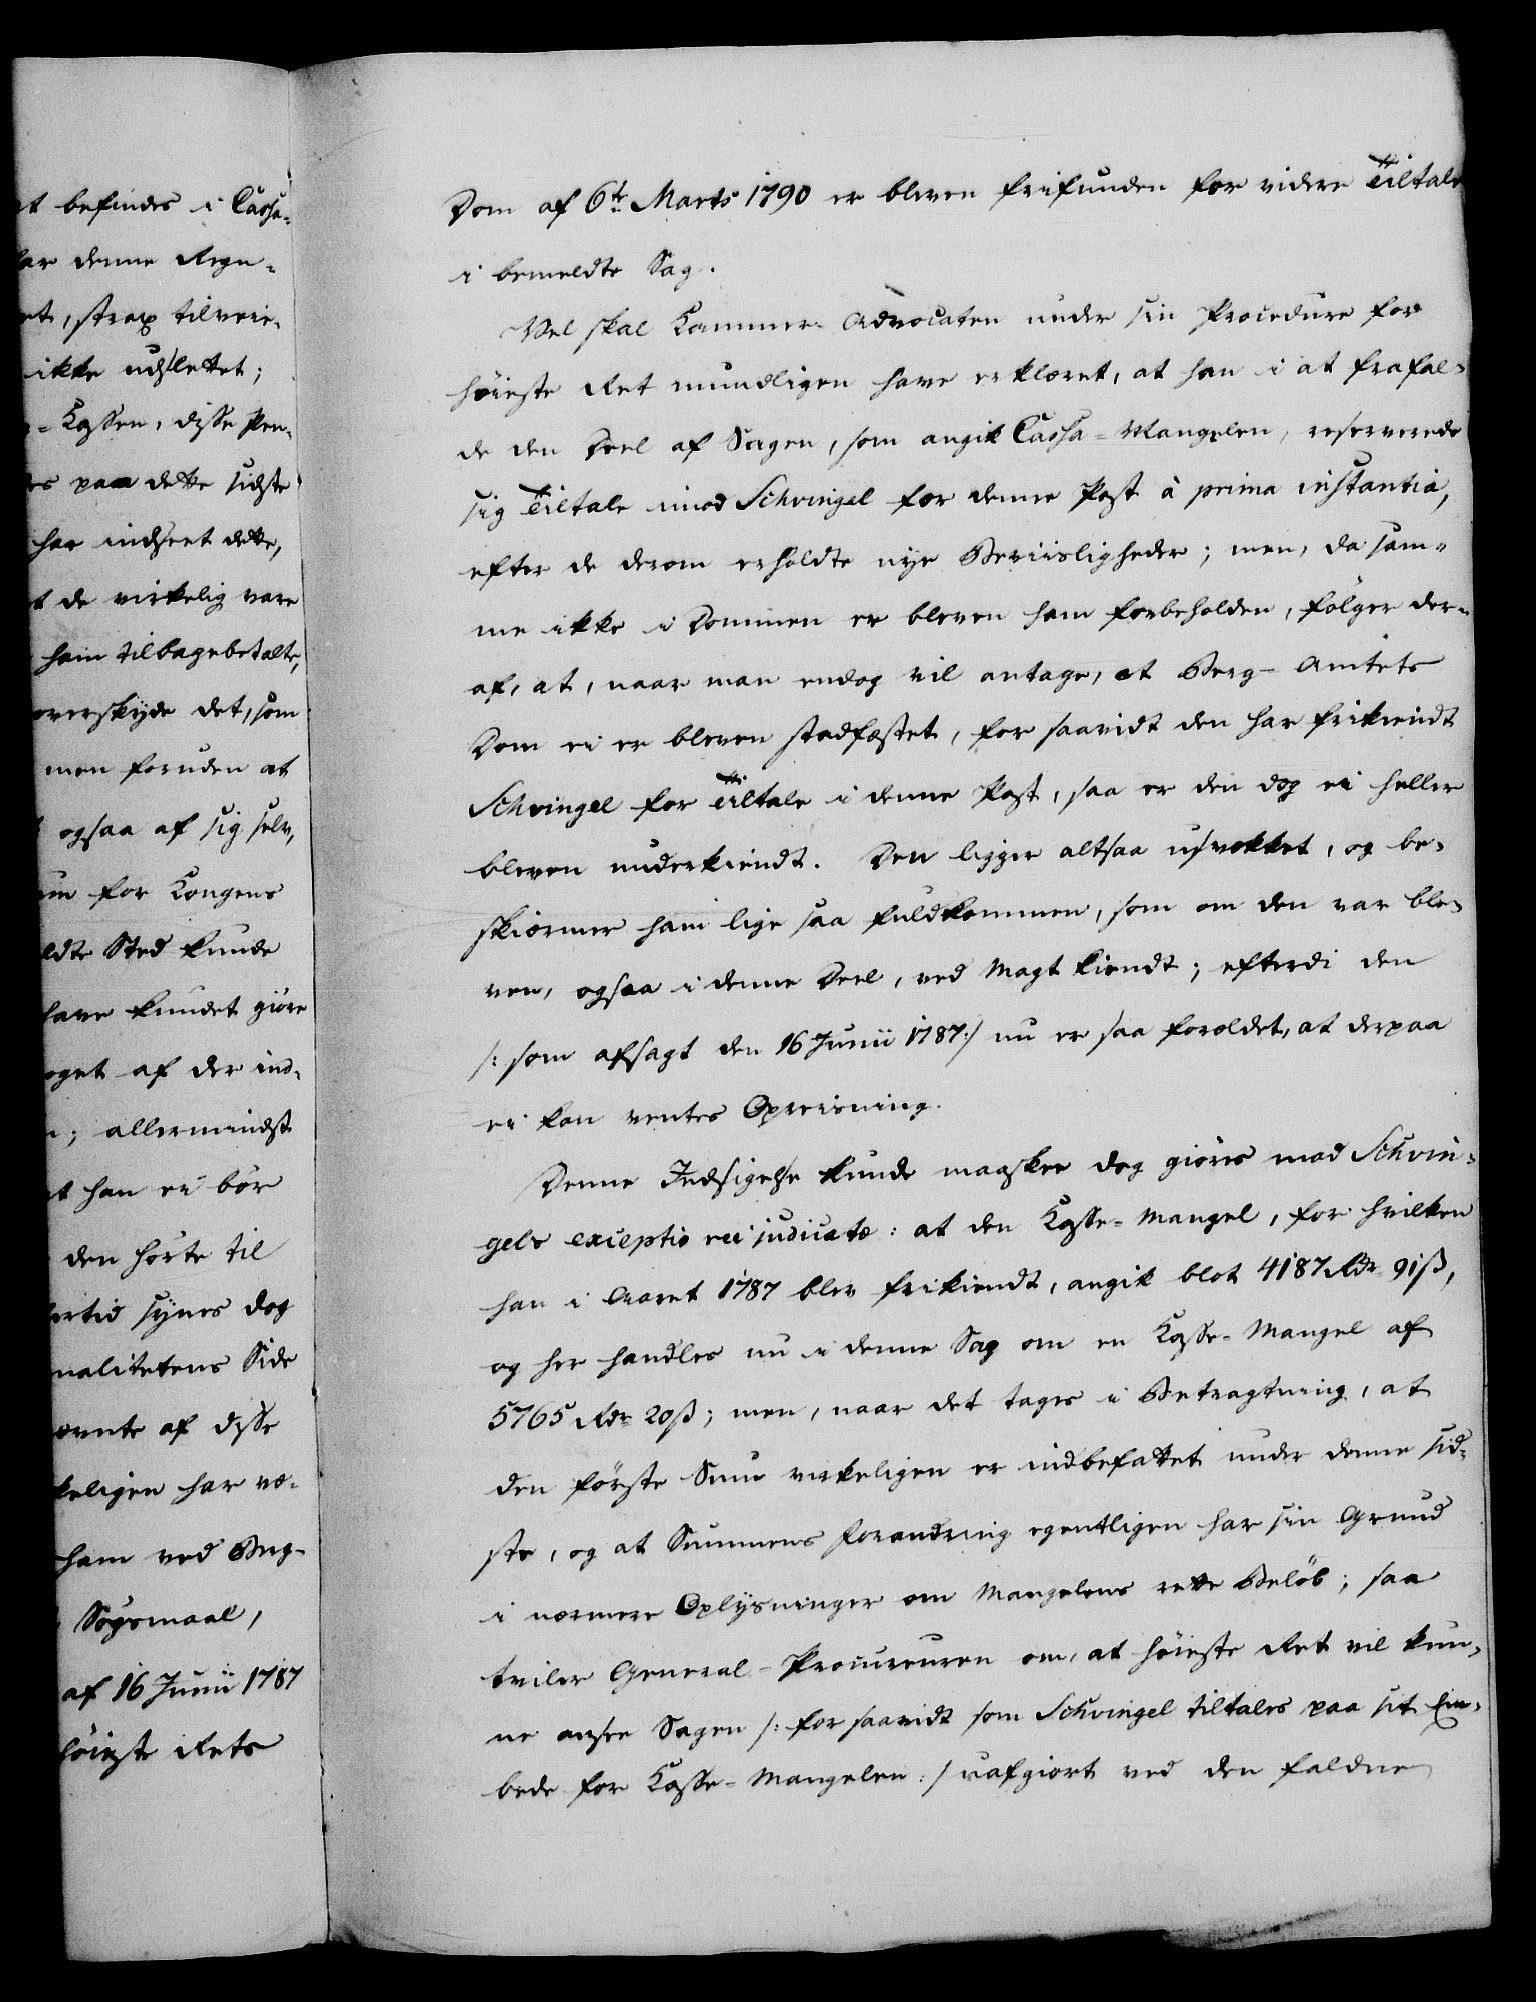 at befindes i Cassa-
denne Regn-
et, strax tilveie-
ikke udslettet;
- Cassen, disse Pen-
paa dette sidste
har indseet dette,
t de virkelig vare
ham tilbagebetalte,
overskyde det, som
men foruden at
ogsaa af sig selv,
for Kongens
Sted kunde
have kundet giöre
oget af der ind-
; allermindst
at han ei bör
den hörte til
synes dog
nalitetens Side
ævnte af disse
keligen har væ-
ham ved Berg-
Sögsmaal,
af 16 Junii 1787
höieste Rets
Dom af 6te Marts 1790 er bleven frifunden for videre Tiltale
i bemeldte Sag.
Vel skal Kammer-Advocaten under sin Procedure for
höieste Ret mundligen have erklæret, at han i at frafal-
de den Deel af Sagen, som angik Cassa-Mangelen, reserverede
sig Tiltale imod Schvingel for denne Post à prima instantia,
efter de derom erholdte nye Beviisligheder; men, da sam-
me ikke i Dommen er bleven ham forbeholden, fölger der-
af, at, naar man endog vil antage, at Berg-Amtets
Dom ei er bleven stadfæstet, for saavidt den har frikiendt
Schvingel for Tiltale i denne Post, saa er den dog ei heller
bleven underkiendt. Den ligger altsaa usvækket, og be-
skiermer ham lige saa fuldkommen, som om den var ble-
ven, ogsaa i denne Deel, ved Magt kiendt; efterdi den
/: som afsagt den 16 Junii 1787:/ nu er saa foræidet, at derpaa
ei kan ventes Opreisning.
Denne Indsigelse kunde maaskee dog giöres mod Schvin-
gels exceptio rei judicatæ: at den Kasse-Mangel, for hvilken
han i Aaret 1787 blev frikiendt, angik blot 4187 Rdr 91 ß,
og her handles nu i denne Sag om en Kasse-Mangel af
5765 Rdr 20 ß; men, naar det tages i Betragtning, at
den förste Sum virkeligen er indbefattet under denne sid-
ste, og at Summens Forandring egentligen har sin Grund
i nærmere Oplysninger om Mangelens rette Belöb; saa
tviler General-Procureuren om, at höieste Ret vil kun-
ne ansee Sagen /: for saavidt som Schvingel tiltales paa sit Em-
bede for Kasse-Mangelen:/ uafgiort ved den faldne